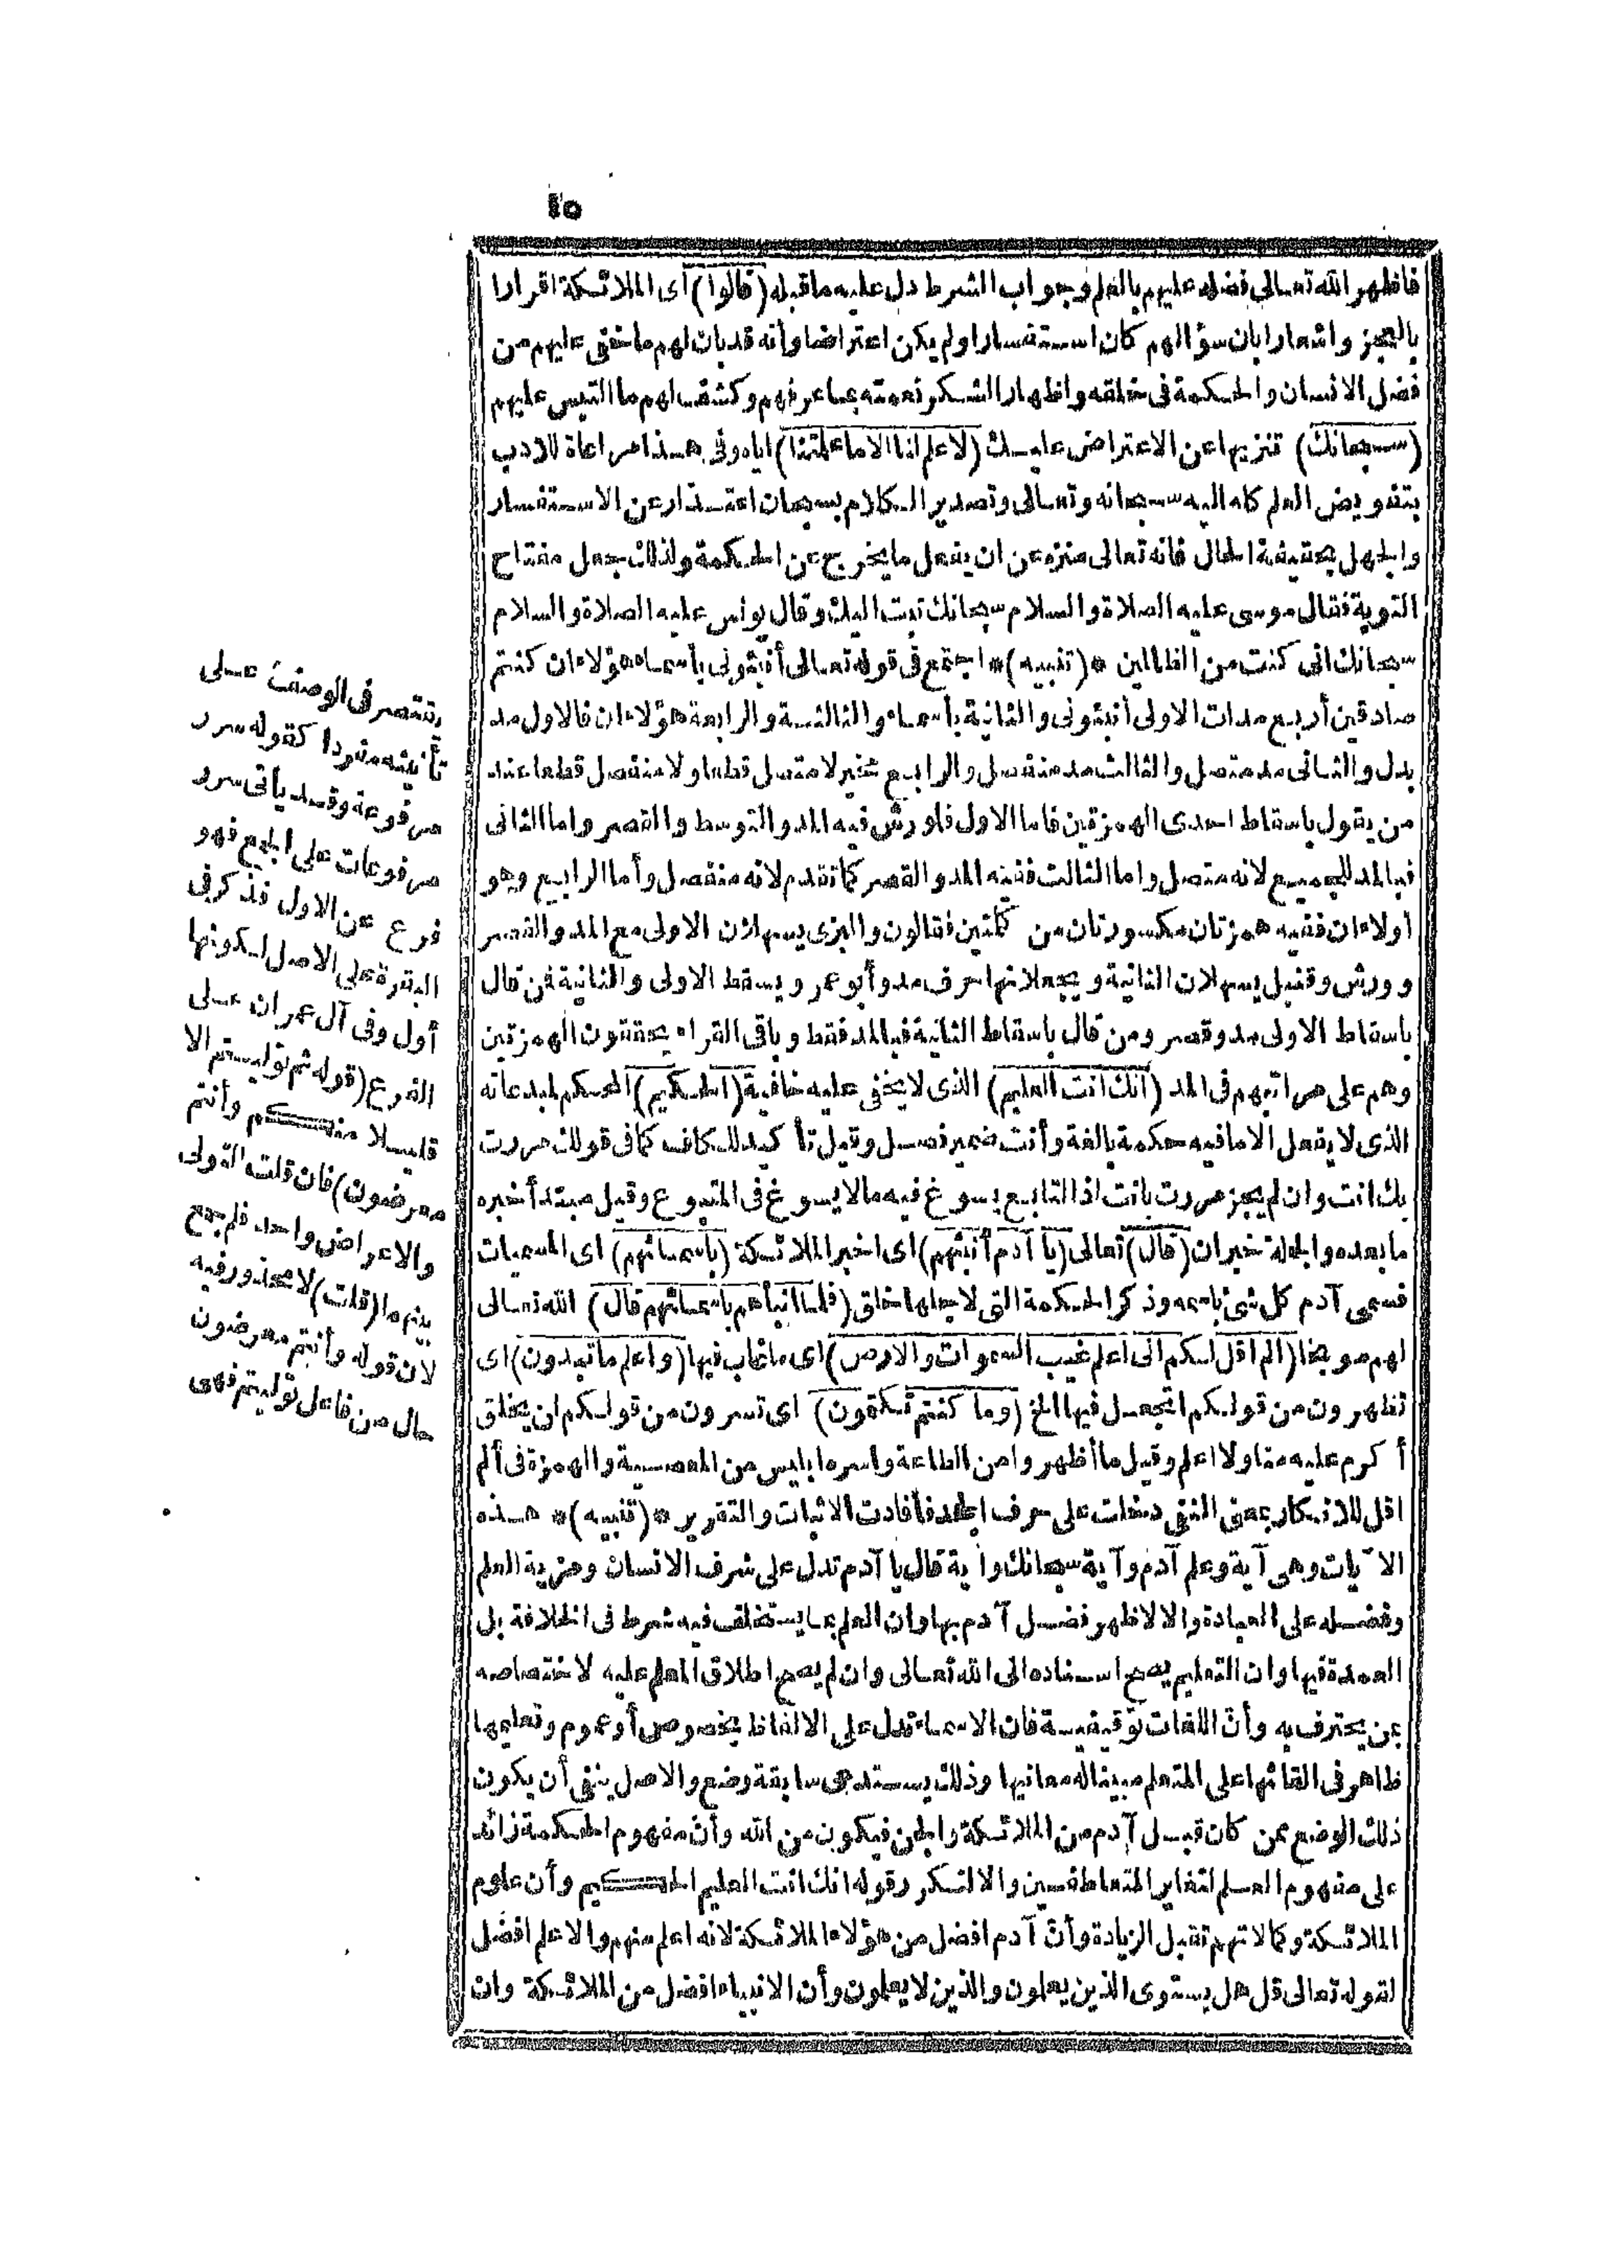 ٤٥
فاظهر الله تعالى فضله عليهم بالعلم وجواب الشرط دل عليه ماقبله (قالوا) أى الملائكة اقرارا
بالعجز واشعارا بان سؤالهم كان استفسارا ولم يكن اعتراضا وأنه قد بان لهم ما خفى عليهم من
فضل الانسان والحكمة فى خلقه واظهار الشكر نعمته بما عرفهم وكشف لهم ما التبس عليهم
(سبحانك) تنزيها عن الاعتراض عليك (لاعلم لنا الا ما علمتنا) اياه وفى هذا مراعاة للادب
بتفويض العلم كله اليه سبحانه وتعالى وتصدير الكلام بسبحان اعتذار عن الاستفسار
والجهل بحقيقة الحال فانه تعالى منزه عن ان يفعل ما يخرج عن الحكمة ولذلك جعل مفتاح
التوبة فقال موسى عليه الصلاة والسلام سبحانك تبت اليك وقال يونس عليه الصلاة والسلام
سبحانك انى كنت من الظالمين * (تنبيه)* اجتمع فى قوله تعالى أنبئونى بأسماء هؤلاء ان كنتم
صادقين أربع مدات الاولى أنبئونى والثانية بأسماء والثالثة والرابعة هؤلاء ان فالاول مد
بدل والثانى مد متصل والثالث مد منفصل والرابع مخير لا متصل قطعا ولا منفصل قطعا عند
من يقول باسقاط احدى الهمزتين فاما الاول فلورش فيه المد والتوسط والقصر واما الثانى
فبالمد للجميع لانه متصل واما الثالث ففيه المد والقصر كما تقدم لانه منفصل وأما الرابع وهو
اولاء ان ففيه همزتان مكسورتان من كلمتين فقالون والبزى يسهلان الاولى مع المد والقصر
وورش وقنبل يسهلان الثانية ويجعلانها حرف مد وأبو عمرو يسقط الاولى والثانية فمن قال
باسقاط الاولى مد وقصر ومن قال باسقاط الثانية فبالمد فقط وباقى القراء يحققون الهمزتين
وهم على مراتبهم فى المد (انك انت العليم) الذى لا يخفى عليه خافية (الحكيم) المحكم لمبدعاته
الذى لا يفعل الا ما فيه حكمة بالغة وأنت ضمير فصل وقيل تأكيد للكاف كما فى قولك مررت
بك انت وان لم يجز مررت بانت اذ التابع يسوغ فيه ما لا يسوغ فى المتبوع وقيل مبتدأ خبره
ما بعده والجملة خبر ان (قال) تعالى (يا آدم أنبئهم) اى اخبر الملائكة (بأسمائهم) اى المسميات
فسمى آدم كل شئ باسمه وذكر الحكمة التى لاجلها خلق (فلما انبأهم بأسمائهم قال) الله تعالى
لهم موبخا (الم اقل لكم انى اعلم غيب السموات والارض) اى ما غاب فيها (واعلم ما تبدون) اى
تظهرون من قولكم اتجعل فيها الخ (وما كنتم تكتمون) اى تسرون من قولكم ان يخلق
أكرم عليه منا ولا اعلم وقيل ما أظهروا من الطاعة واسره ابليس من المعصية والهمزة فى ألم
اقل للانكار بمعنى النفى دخلت على حرف الجحد فأفادت الاثبات والتقرير *(تنبيه)* هذه
الآيات وهى آية وعلم آدم وآية سبحانك وآية قال يا آدم تدل على شرف الانسان ومزية العلم
وفضله على العبادة والا لاظهر فضل آدم بها وان العلم بما يستخلف فيه شرط فى الخلافة بل
العمدة فيها وان التعليم يصح اسناده الى الله تعالى وان لم يصح اطلاق المعلم عليه لاختصاصه
بمن يحترف به وأن اللغات توقيفية فان الاسماء تدل على الالفاظ بخصوص أو عموم وتعليمها
ظاهر فى القائها على المتعلم مبينا له معانيها وذلك يستدعى سابقة وضع والاصل ينفى أن يكون
ذلك الوضع ممن كان قبل آدم من الملائكة والجن فيكون من الله وأن مفهوم الحكمة زائد
على مفهوم العلم لتغاير المتعاطفين والا لتكرر قوله انك انت العليم الحكيم وأن علوم
الملائكة وكمالاتهم تقبل الزيادة وأن آدم افضل من هؤلاء الملائكة لانه اعلم منهم والاعلم افضل
لقوله تعالى قل هل يستوى الذين يعلمون والذين لا يعلمون وأن الانبياء افضل من الملائكة وان
يقتصر فى الوصف على
تأنيثه مفردا كقوله سرر
مرفوعة وقد يأتى سرر
مرفوعات على الجمع فهو
فرع عن الاول فذكر فى
البقرة على الاصل لكونها
أول وفى آل عمران على
الفرع (قوله ثم توليتم الا
قليلا منكم وأنتم
معرضون) فان قلت التولى
والاعراض واحد فلم جمع
بينهما (قلت) لا محذور فيه
لان قوله وأنتم معرضون
حال من فاعل توليتم فهى